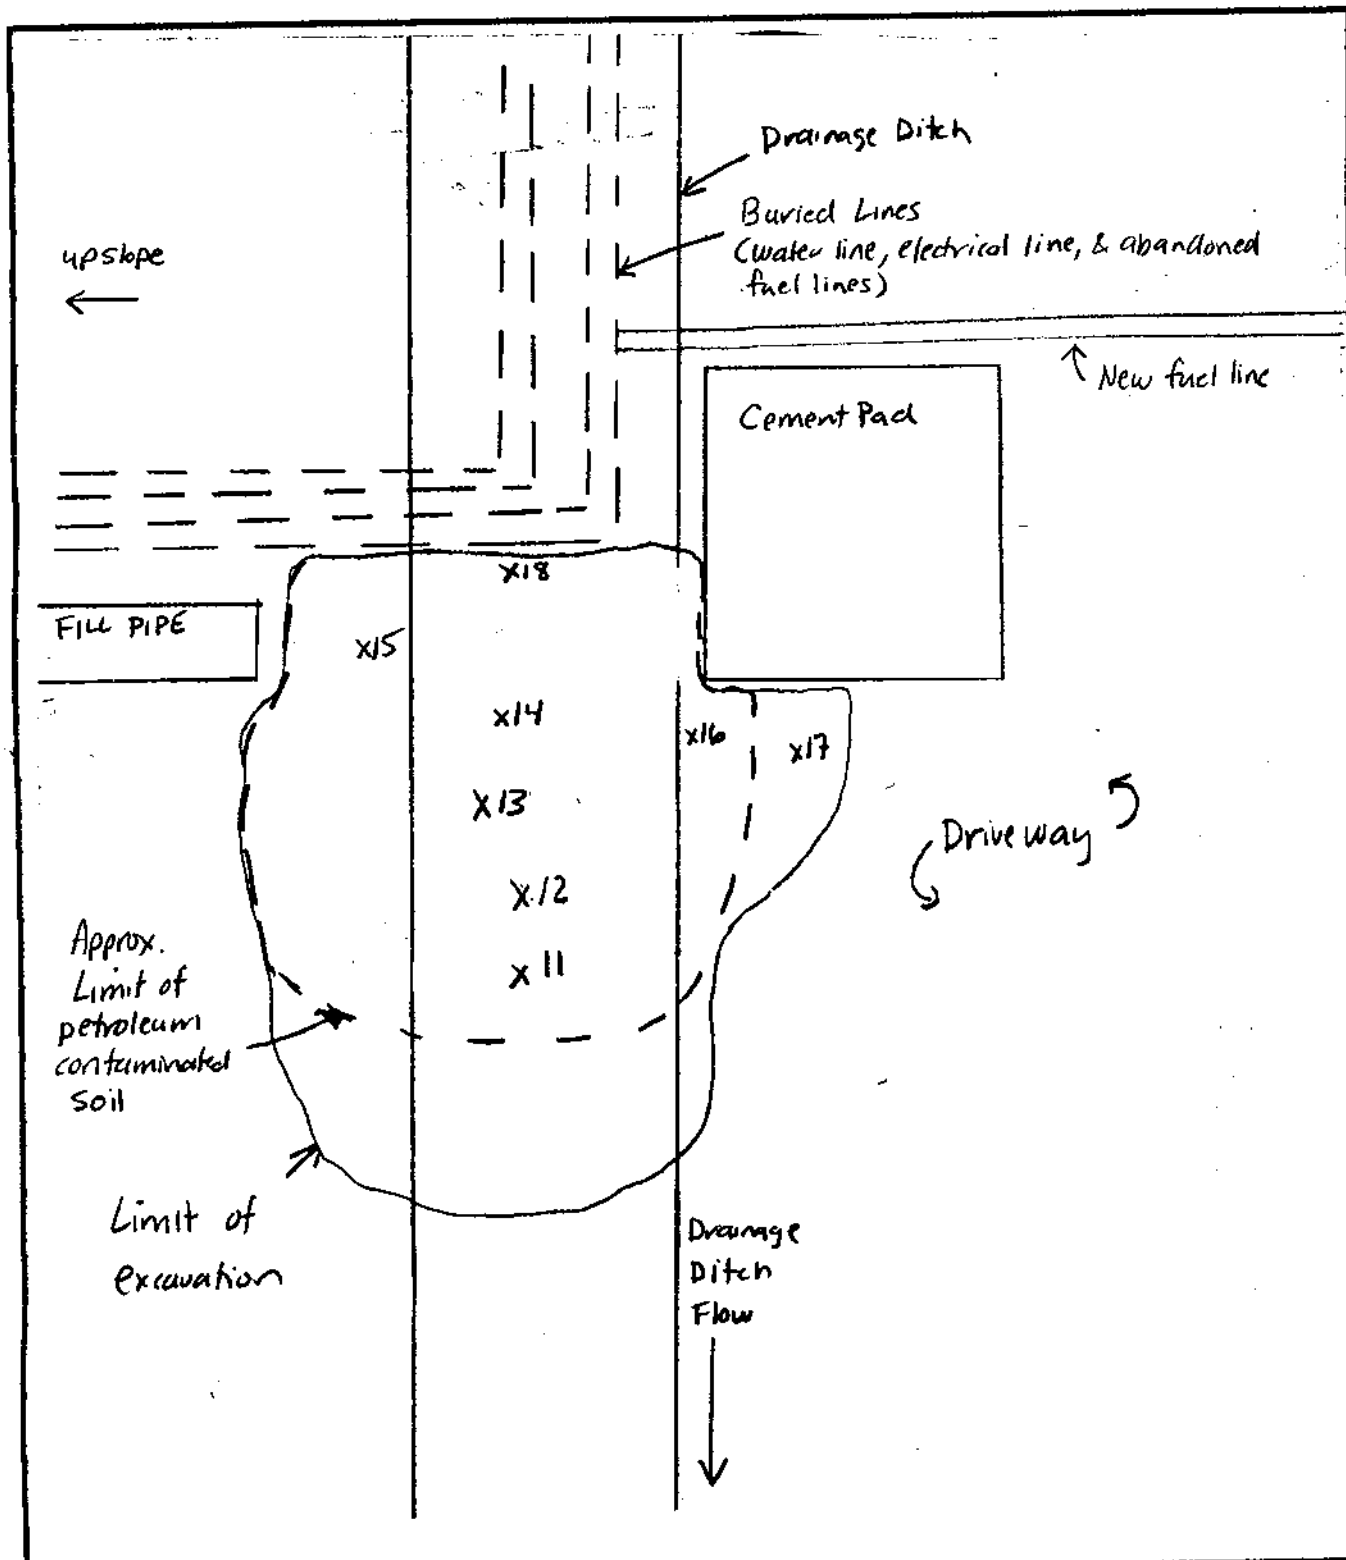 Drainage Ditch
Buried Lines
(water line, electrical line, & abandoned
fuel lines)
upslope
New fuel line
Cement Pad
FILL PIPE
x18
x15
x14
x16
x17
x13
Driveway
x12
x11
Approx.
Limit of
petroleum
contaminated
soil
Limit of
excavation
Drainage
Ditch
Flow